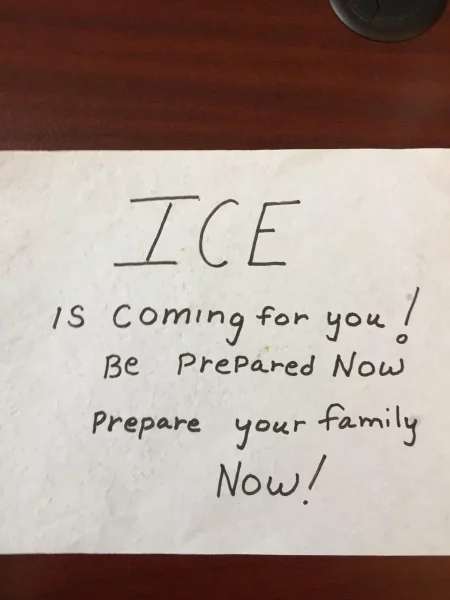 ICE
IS Coming for you!
Be PrePared Now
Prepare your family
Now!